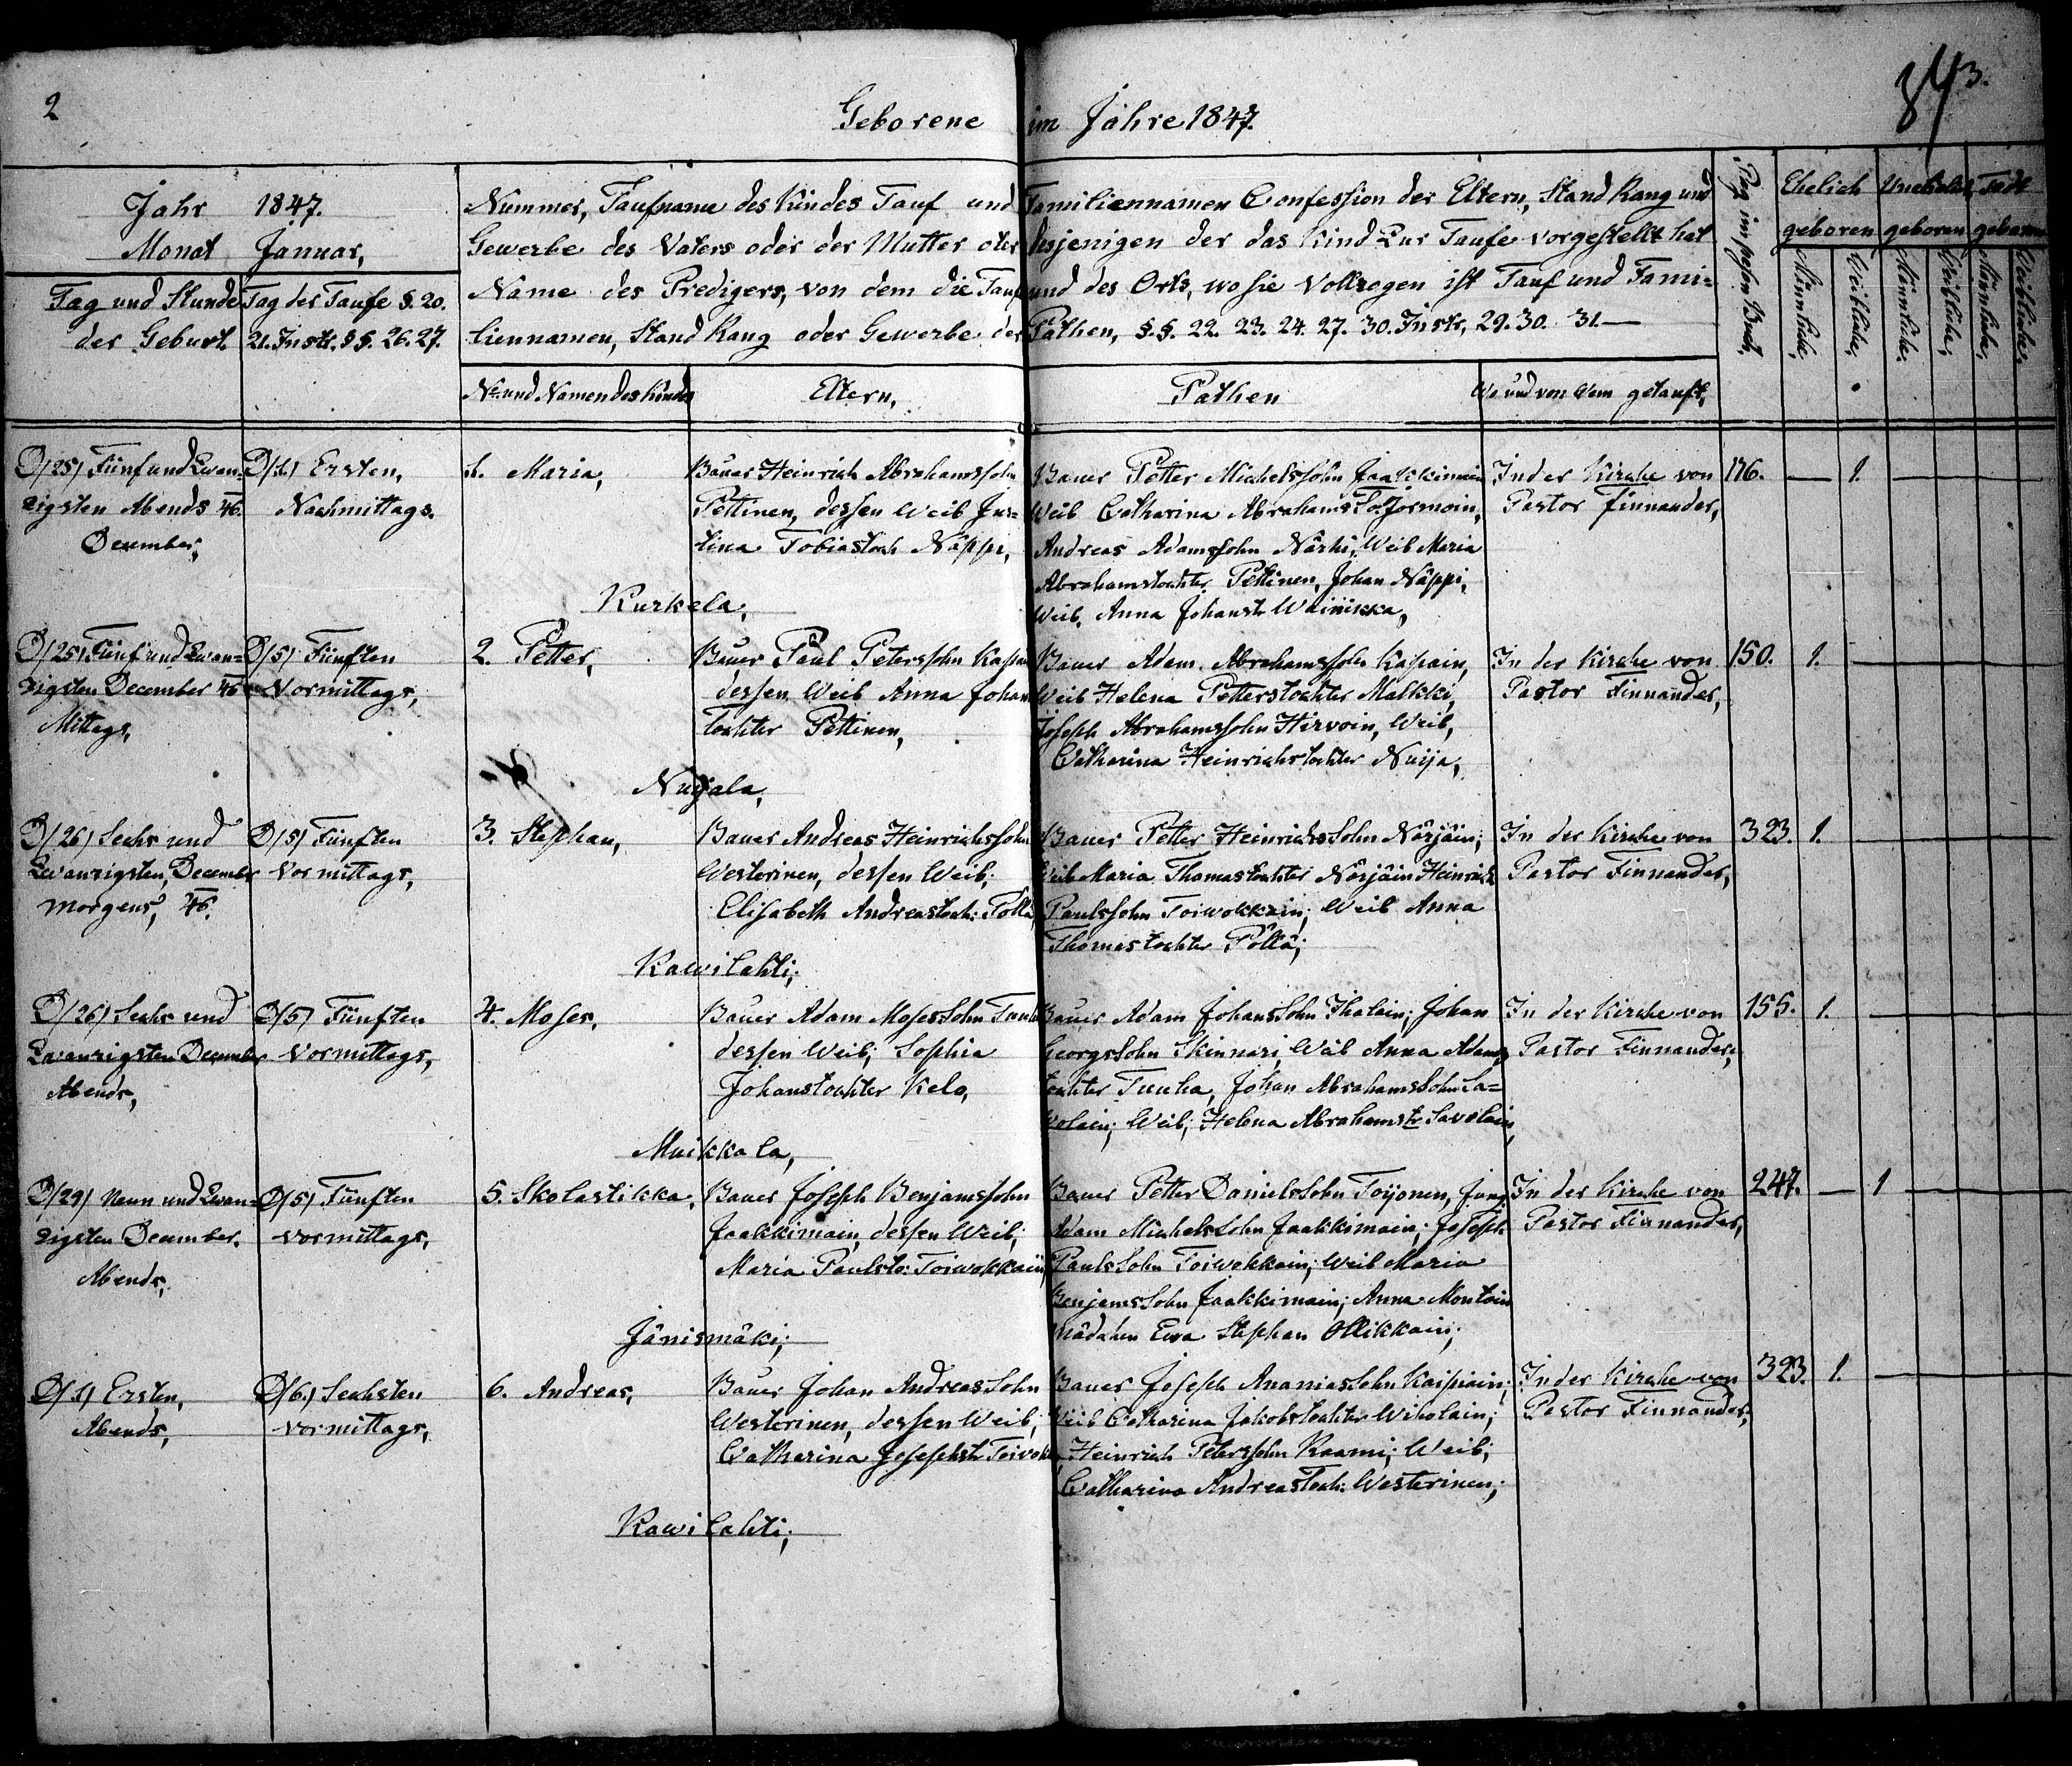 2
Geborene im Jahre 1847.
843.
Jahr 1847.
Monat Januar,
Tag und Stunde
der Geburt.
Tag der Taufe §. 20.
21. Instr. §§. 26. 27.
Nummer, Taufname des Kindes Tauf und Familiennamen Confession der Eltern, Stand Rang und
Gewerbe des Vaters oder der Mutter oder desjenigen der das Kind Zur Taufe vorgestellt hat
Name des Predigers, von dem die Tauf und des Orts, wo sie Vollzogen ist Tauf und Fami-
liennamen, Stand Rang oder Gewerbe der Pathen, §.§. 22. 23. 24. 27. 30. Instr, 29. 30. 31.—
No und Namen des Kindes
Eltern,
Pathen
Wo und von Wem getauft,
Ehelich
geboren
Männliche,
Weibliche,
Unehelich
geboren
Männliche,
Weibliche,
Todt
geboren
Männliche,
Weibliche,
D/25/ Fünf und Zwan-
zigsten Abends 46.
December,
D/1./ Ersten,
Nachmittags.
1. Maria,
Bauer Heinrich Abrahamssohn
Pettinen, dessen Weib Jus-
tina Tobiastoch Näppi,
Kurkela,
Bauer Petter Michelssohn Jaakkimain
Weib Catharina Abrahams To: Jormoin,
Andreas Adamssohn Närhi, Weib Maria
Abrahamstochter Pettinen, Johan Näppi,
Weib, Anna Johanstr Wainikka,
In der Kirche von
Pastor Finnander,
176. — 1.
D/25/ Fünf und Zwan-
zigsten December 46
Mittags,
D/5/ Fünften
Vormittags,
2. Petter,
Bauer Paul Peterssohn
dessen Weib Anna Johan
Tochter Pettinen,
Nuijala,
Bauer Adam Abrahamssohn Kaipain,
Weib Helena Petterstochter Malkki,
Joseph Abrahamssohn Hirvoin, Weib,
Catharina Heinrichstochter Nuija,
In der Kirche von
Pastor Finnander,
150. 1.
D/26/ Sechs und
Zwanzigsten, December
morgens, 46.
D/5/ Fünften
Vormittags,
3. Stephan,
Bauer Andreas Heinrichssohn
Westerinen, dessen Weib;
Elisabeth Andreastoch: Pöllä,
Kawilahti;
Bauer Petter Heinrichssohn Närjäin;
Weib Maria Thomastochter Närjäin Heinrich
Paulssohn Toiwokkain; Weib Anna
Thomastochter Pöllä;
In der Kirche von
Pastor Finnander,
323. 1.
D/26/ Sechs und
Zwanzigsten December
Abends,
D/5/ Fünften
Vormittags,
4. Moses,
Bauer Adam Mosessohn
dessen Weib; Sophia
Johanstochter Kelo,
Muikkala,
Bauer Adam Johanssohn Ihalain; Johan
Georgssohn Skinnari, Weib Anna Adams
tochter Tuuha, Johan Abrahamssohn Sa-
volain; Weib; Helena Abrahamstr Savolain,
In der Kirche von
Pastor Finnander,
155. 1.
D/29/ Neun und Zwan-
zigsten December.
Abends,
D/5/ Fünften
Vormittags,
5. Skolastikka,
Bauer Joseph Benjamssohn
Jaakkimain, dessen Weib;
Maria Paulsto: Toiwokkain,
Jänismäki;
Bauer Petter Danielssohn Toijonen, Jung
Adam Michelssohn Jaakkimain; Joseph
Paulssohn Toiwokkain; Weib Maria
Benjamssohn Jaakkimain; Anna Montoin
mädchen Ewa Stephan Ollikkain;
In der Kirche von
Pastor Finnander,
247. — 1
D/1/ Ersten,
Abends,
D/6./ Sechsten
Vormittags,
6. Andreas,
Bauer Johan Andreassohn
Westerinen, dessen Weib;
Catharina Josephstr
Kawilahti;
Bauer Joseph Ananiassohn Kaipiain;
Weib Catharina Jakobstochter Wiholain;
Heinrich Peterssohn Raami; Weib;
Catharina Andreastoch: Westerinen;
In der Kirche von
Pastor Finnander,
323. 1.